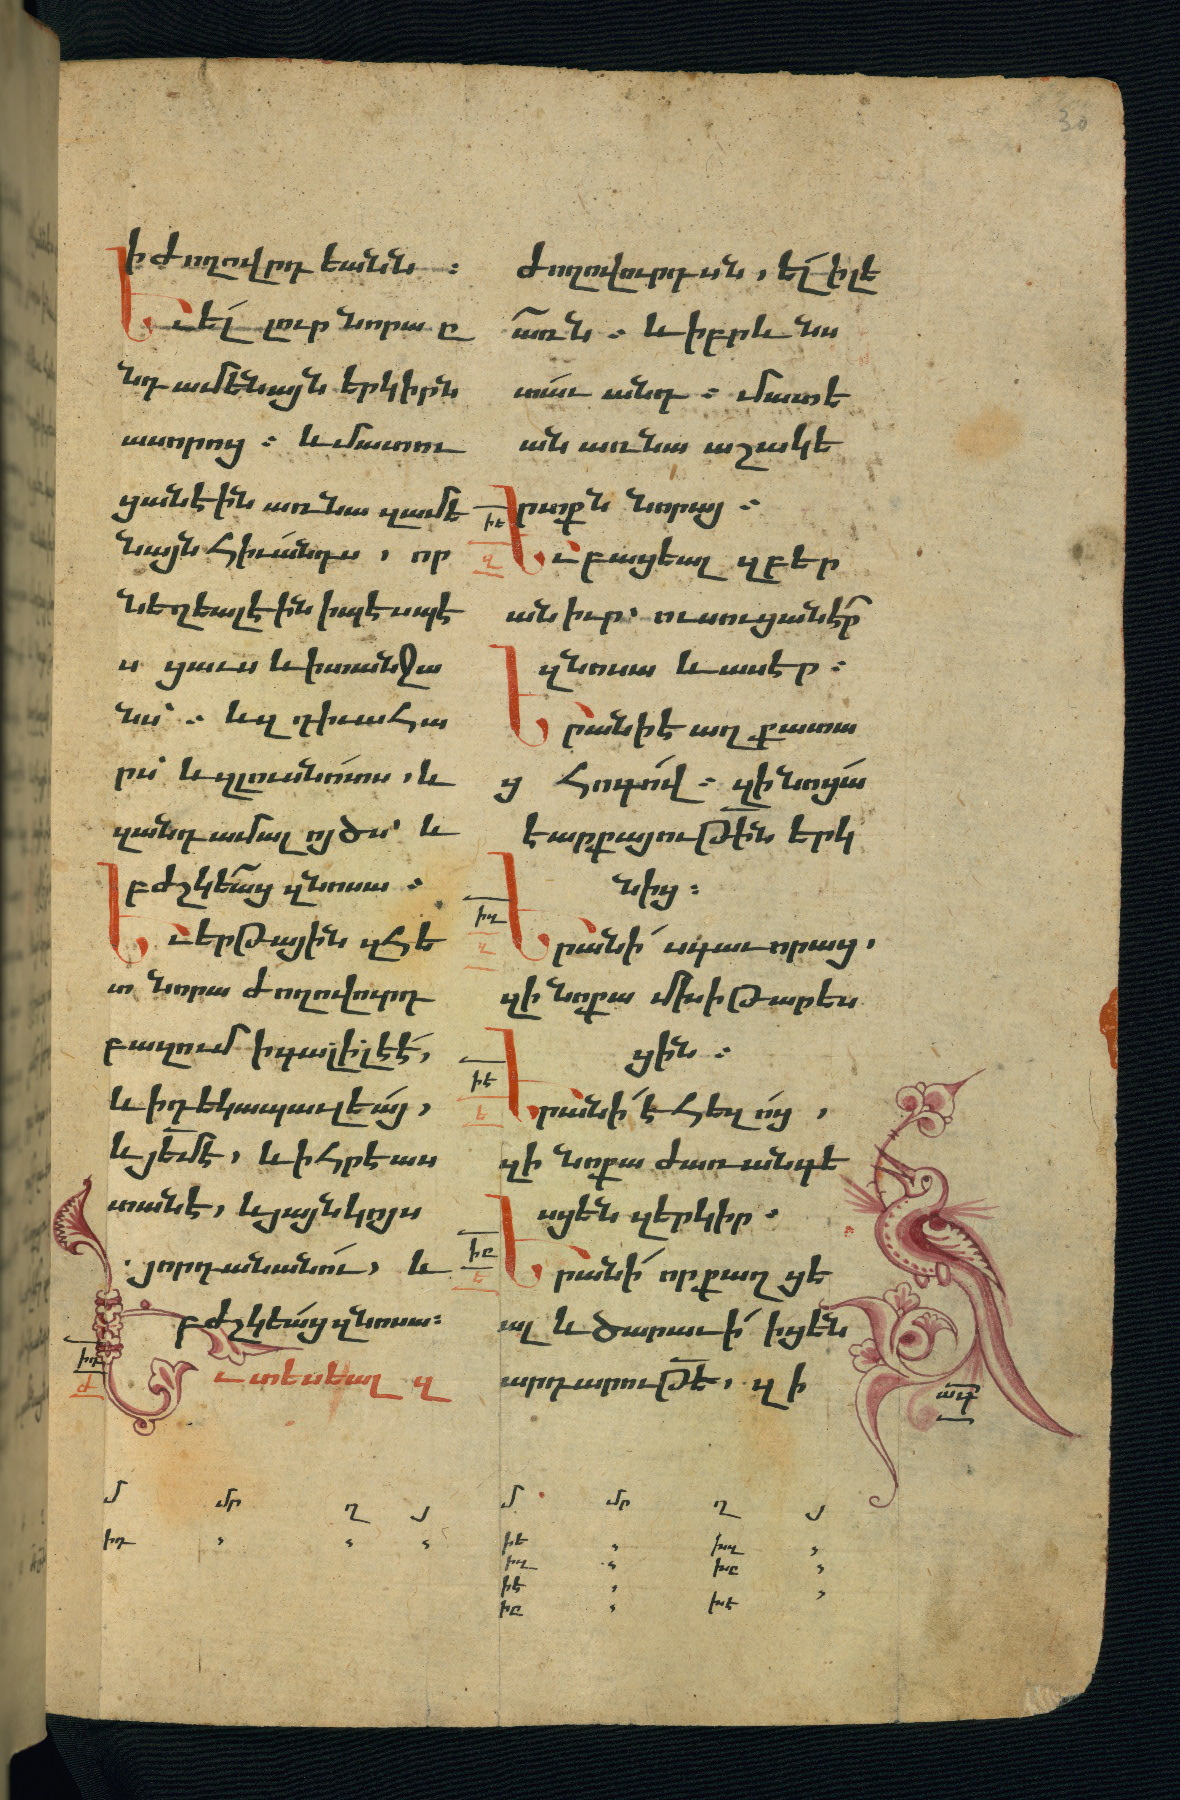 30
ի ժողովրդեանն ։
Եւ ել լուր նորա ը
նդ ամենայն երկիրն
ասորոց ։ և մատու
ցանէին առնա զամե
նայն հիւանդս , որ
նեղեալ էին ի պէսպէ
ս ցաւս և ի տանջա
նս՝ ։ և զդիւահա
րս՝ և զլուսնոտս , և
զանդամալոյծս՝ և
բժշկեաց զնոսա ։
Եւ երթային զհե
տ նորա ժողովուրդ
բազում ի գալիլեէ,
և ի դեկապաւլեայ,
և յեմէ, և ի հրէաս
տանէ, և յայնկոյս
յորդանանու, և
բժշկեաց զնոսա։
իդ
ժ
Եւ տեսեալ զ
ժողովուրդսն , ել ի լե
առն ։ և իբրև նս
տաւ անդ ։ մատե
ան առնա աշակե
րտքն նորայ ։
իե
զ
Եւ բացեալ զբեր
ան իւր՝ ուսուցանէր
զնոսա և ասէր ։
Երանի է աղքատա
ց հոգով ։ զի նոցա
է արքայութին երկ
նից ։
իզ
Երանի սգաւորաց ,
զի նոքա մխիթարես
ցին ։
իէ
ե
Երանի է հեզոց ,
զի նոքա ժառանգե
սցեն զերկիր ։
իը
ե
Երանի որ քաղցե
ալ և ծարաւի իցեն
արդարութե , զի
մ մր ղ յ
իդ
մ մր ղ յ
իե խզ
իզ խը
իէ
իը խե